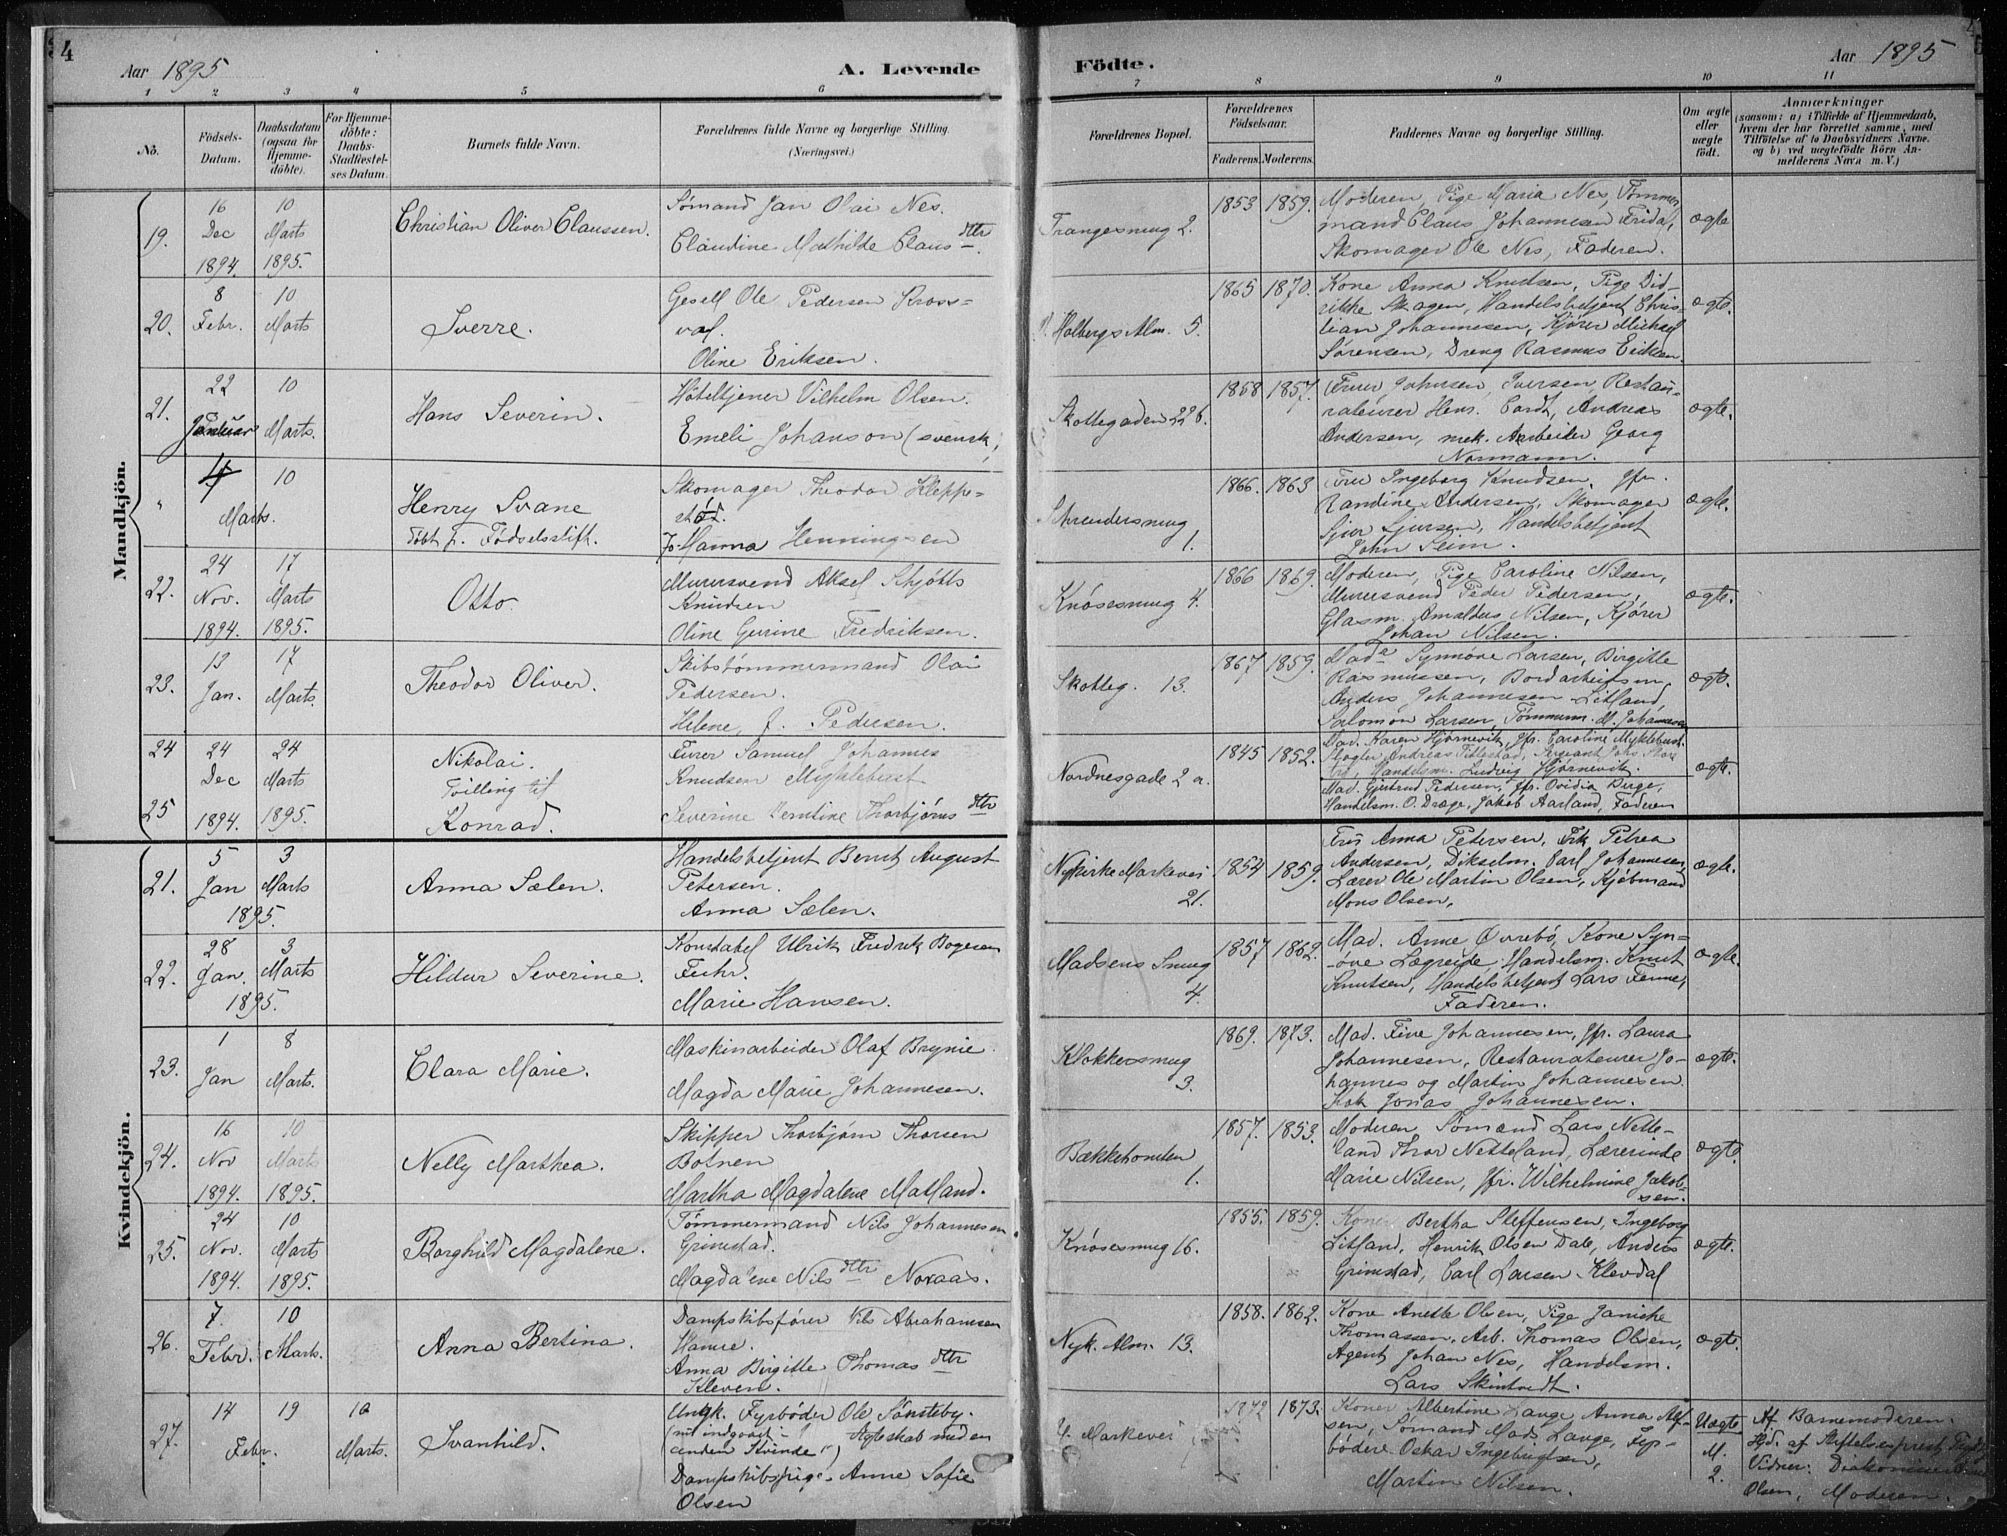 4
Aar 1895
A. Levende
Födte.
Aar 1895
1 2 3 4 5 6 7 8 9 10 11
No.
Födsels-Datum.
Daabsdatum (ogsaa for Hjemme-döbte).
For Hjemme-döbte: Daabs-Stadfæstel-ses Datum.
Barnets fulde Navn.
Forældrenes fulde Navne og borgerlige Stilling. (Næringsvei.)
Forældrenes Bopæl.
Forældrenes Födselsaar.
Faderens. Moderens.
Faddernes Navne og borgerlige Stilling.
Om ægte eller uægte födt.
Anmærkninger
(saasom: a) i Tilfælde af Hjemmedaab, hvem der har forrettet samme, med Tilföielse af to Daabsvidners Navne. og b) ved uægtefödte Börn An-melderens Navn m. V.)
Mandkjön.
19.
16 Dec 1894.
10 Marts 1895.
Christian Oliver Claussen.
Sömand Jan Olai Nes.
Claudine Mathilde Clausdttr
Trangesmug 2.
1853 1859.
Moderen, Pige Maria Nes, Tömmer
mand Claus Johannesen Fridal,
Skomager Ole Nes, Faderen.
ægte
20.
8 Febr.
10 Marts
Sverre.
Gesell Ole Pedersen Kross-
Oline Eriksen.
Holbergs Alm. 5.
1865 1870.
Kone Anna Knudsen, Pige Did-
rikke Skagen, Handelsbetjent Chris-
tian Johannesen, Kjörer Michael
Sörensen, Dreng Rasmus Eriksen.
ægte.
21.
22 Januar
10 Marts.
Hans Severin.
Höteltjener Vilhelm Olsen.
Emeli Johanson (svensk)
Skottegaden 22 b.
1858 1857.
Fruer Johnsen, Iversen, Restau-
rateurer Henr. Cardt, Andreas
Andersen, mek. Arbeider Georg
Normann.
ægte.
"
4 Marts.
10
Henry Svane
döbt f. Födselsstift.
Skomager Theodor Kleppe-
stöd.
Johanna Henningsen
Strendersmug 1.
1866. 1863
Frue Ingeborg Knudsen, Jfr.
Randine Andersen, Skomager
Sjur Sjursen, Handelsbetjent
John Seim.
ægte.
22.
24 Nov. 1894.
17 Marts 1895.
Otto.
Murersvend Aksel Skjötts
Knudsen
Oline Gurine Fredriksen.
Knösesmug 4.
1866 1869.
Moderen, Pige Caroline Nilsen,
Murersvend Peder Pedersen,
Glasm. Amaldus Nilsen, Kjörer
Johan Nilsen.
ægte.
23.
13 Jan.
17 Marts.
Theodor Oliver.
Skibstömmermand Olai
Pedersen.
Helene, f. Pedersen.
Skotteg. 13.
1867 1859.
Mad. Synnöve Larsen, Birgitte
Rasmussen, Bordarbeidsm.
Anders Johannesen Litland,
Salomon Larsen, Tömmerm. M. Johannesen
ægte.
24
25
24 Dec 1894.
24 Marts 1895.
Nikolai.
Tvilling til
Konrad.
Furer Samuel Johannes
Knudsen Myklebust
Severine Berntine Thorbjörnsdttr
Nordnesgade 2 a.
1845 1852.
Mad. Karen Hjörnevik, Jfr. Caroline Myklebust.
Handelsm. Ludvig Hjörnevik.
Mad. Gjertrud Pedersen, Jfr. Ovidia Berge,
Handelsm. O. Dræge, Jakob Aarland, Faderen
ægte.
Kvindekjön.
21.
5 Jan 1895.
3 Marts
Anna Sælen.
Handelsbetjent Bernt August
Petersen.
Anna Sælen.
Nykirke Markevei 21.
1854 1859.
Fru Anna Petersen, Frk Petrea
Andersen, Dikselm. Carl Johannesen,
Lærer Ole Martin Olsen, Kjöbmand
Mons Olsen.
ægte.
22.
28 Jan. 1895.
3 Marts
Hildur Severine.
Konstabel Ulrik Fredrik Bogesen
Fuhr.
Marie Hansen.
Madsens Smug 4.
1857 1862.
Mad. Anne Övrebö, Kone Syn-
növe Lægreide, Handelsm. Knut
Knutsen, Handelsbetjent Lars Fenne,
Faderen.
ægte.
23.
1 Jan
8 Marts.
Clara Marie.
Maskinarbeider Olaf Brynie.
Magda Marie Johannesen.
Klokkersmug 3.
1869. 1873.
Mad. Fine Johannesen, Jfr. Laura
Johannesen, Restaurateurer Jo-
hannes og Martin Johannesen.
Kok Jonas Johannesen.
ægte.
24.
16 Nov 1894.
10 Marts 1895.
Nelly Marthea.
Skipper Thorbjörn Thorsen
Botnen
Martha Magdalene Matland.
Bækketomten 1.
1857. 1853.
Moderen, Sömand Lars Nette-
land Thor Netteland, Lærerinde
Marie Nilsen, Jfr. Wilhelmine Jakob-
sen.
ægte.
25.
24 Nov. 1894.
10 Marts 1895.
Borghild Magdalene.
Tömmermand Nils Johannesen
Grimstad.
Magdalene Nilsdttr Noraas.
Knösesmug 16.
1855. 1859.
Koner Bertha Steffensen, Ingeborg
Litland, Henrik Olsen Dale, Anders
Grimstad, Carl Larsen Klevdal
ægte.
26.
7. Febr.
10 Marts.
Anna Bertina.
Dampskibsförer Nils Abrahamsen
Hamre.
Anna Birgitte Thomasdttr
Kleven.
Nyk. Alm. 13.
1858. 1862.
Kone Anette Olsen, Pige Janiche
Thomassen, Arb. Thomas Olsen,
Agent Johan Nes, Handelsm.
Lars Skintvedt.
ægte.
27.
14 Febr.
19
10 Marts.
Svanhild.
Ungk. Fyrböder Ole Sönsteby.
(nu indgaaet i Ægteskab med en
anden Kvinde)
Dampskibspige Anne Sofie
Olsen
Markevei
1872 1873.
Koner Albertine Lange, Anna Alf-
sen, Sömand Mads Lange, Fyr-
bödere Oskar Ingebrigtsen,
Martin Nilsen.
Uægte
M. 2.
Af Barnemoderen.
Hjd. af Stiftelsesprest
Vidner: Diakonisse
Olsen, Moderen.